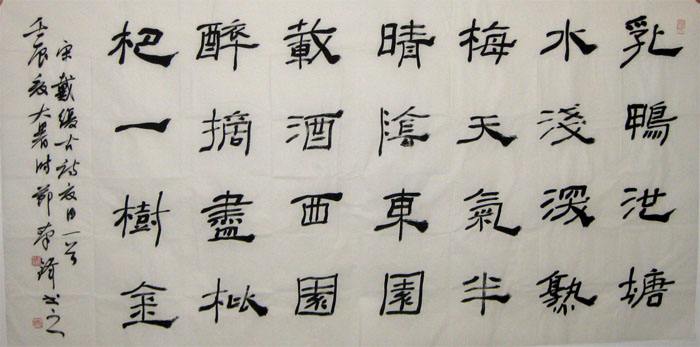 乳鴨池塘
水淺深熟
梅天氣半
晴陰東園
載酒西園
醉摘盡枇
杷一樹金
宋戴復古詩夏日一首
壬辰大暑时節書之